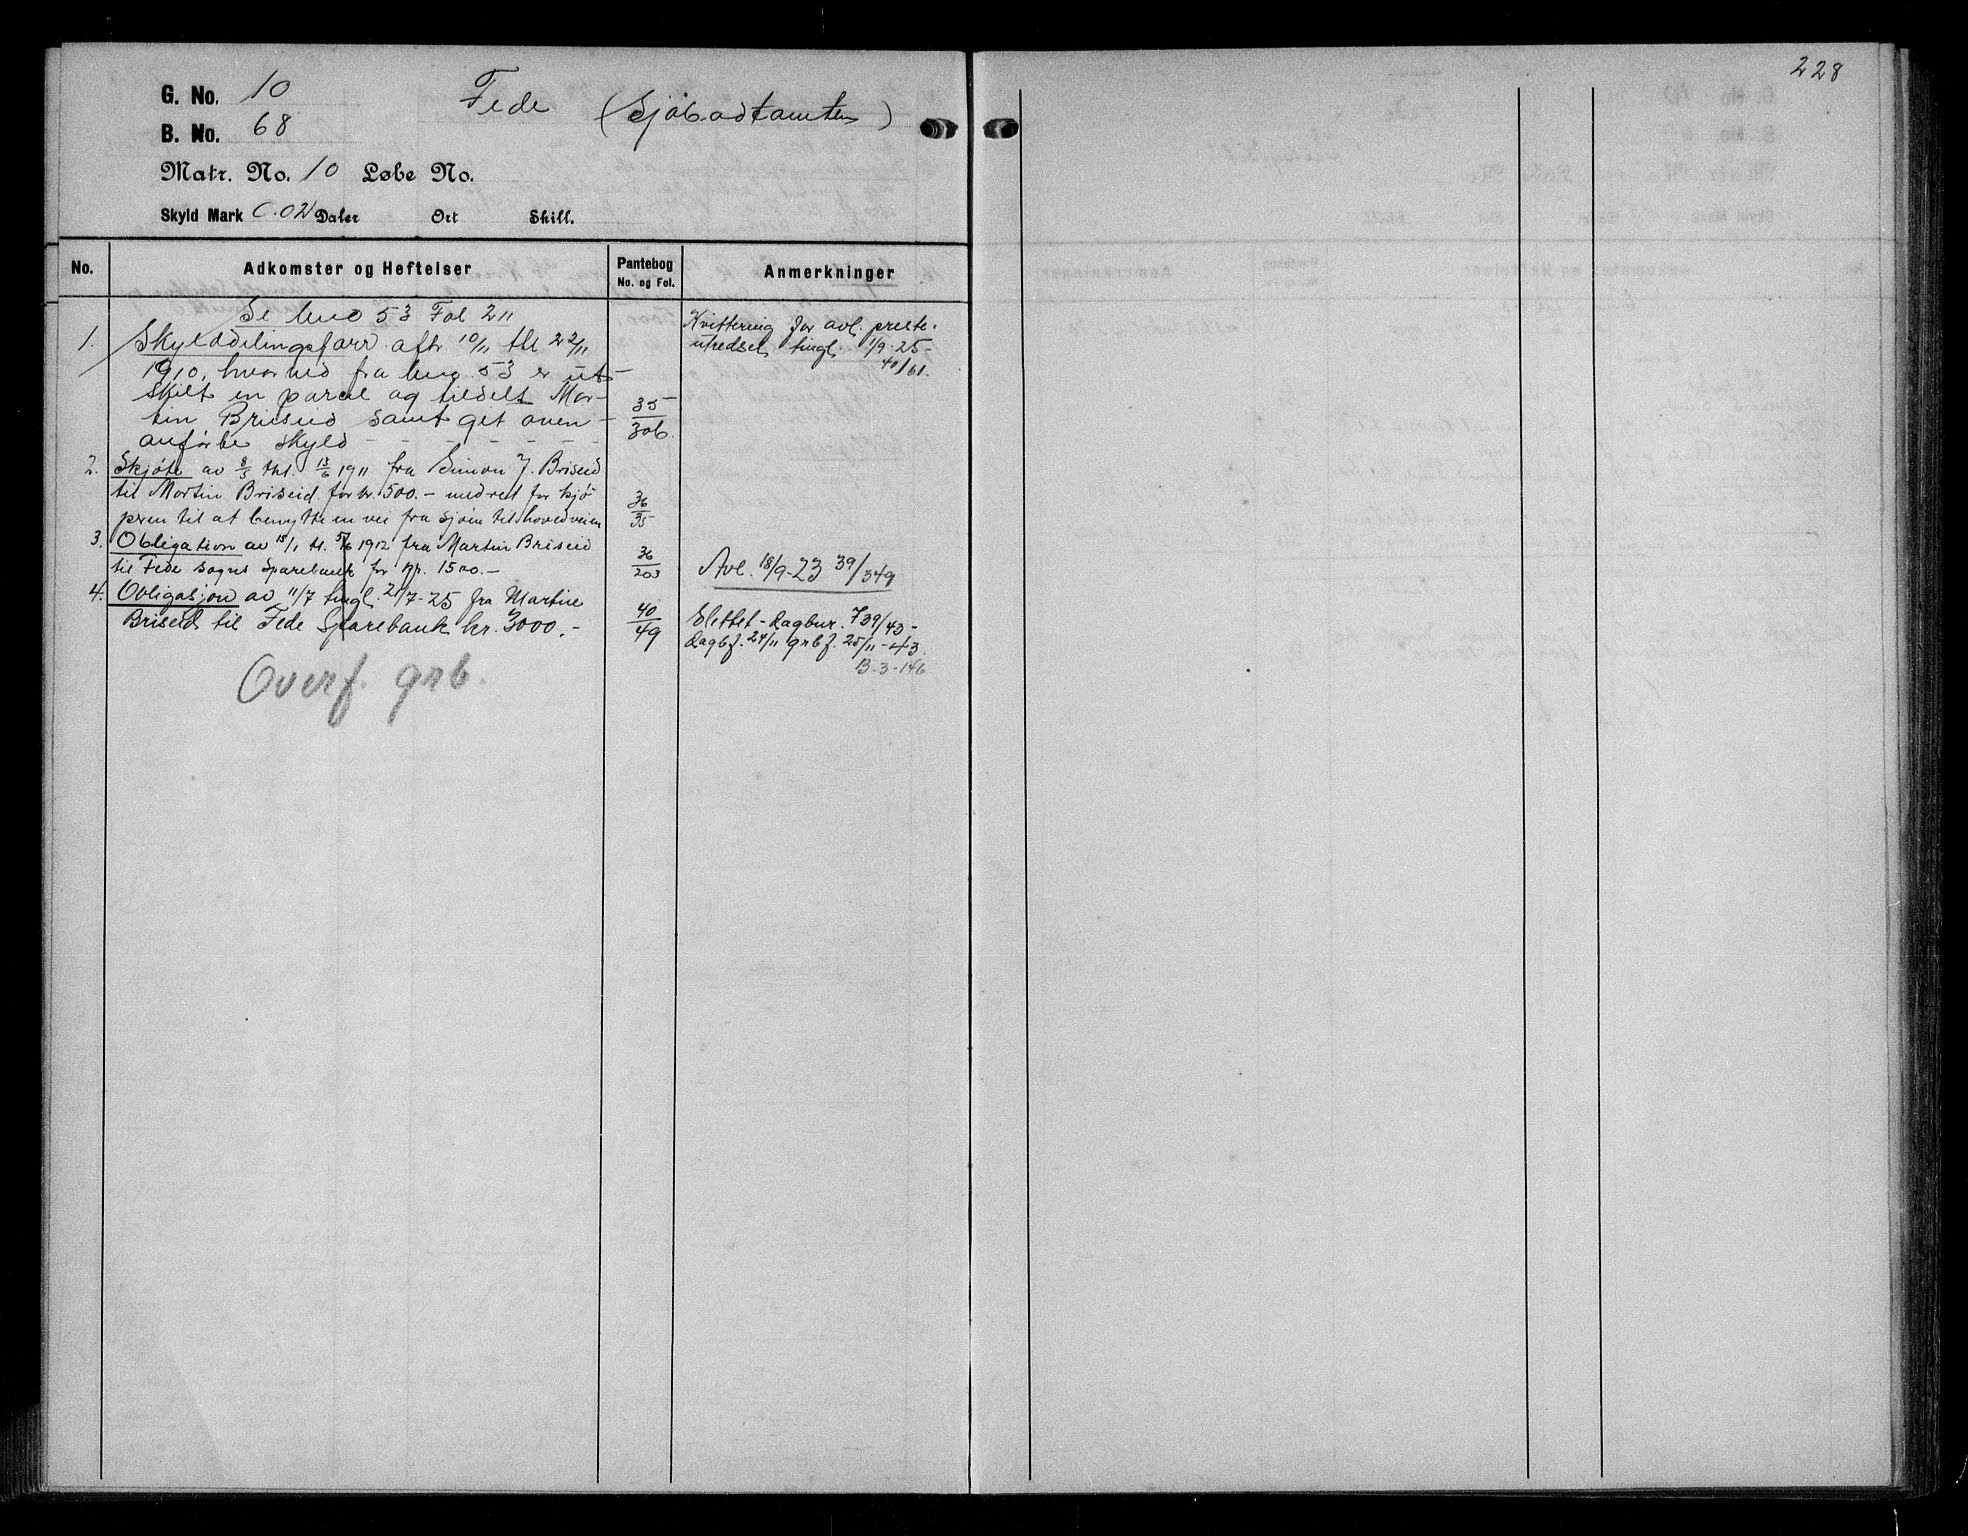 228
G. No. 10
Fede (Sjøbodtomten)
B. No. 68
Matr. No. 10 Løbe No.
Skyld Mark 0.02 Daler Ort Skill.
No. Adkomster og Heftelser Pantebog No. og Fol. Anmerkninger
Se bno 53 Fol 211
1. Skylddelingsforr. afh. 10/11 thl 22/11
1910, hvorved fra bno. 53 er ut-
skilt en parcel og tildelt Mar-
tin Briseid samt git oven-
anførte skyld - - - - - -
35/306.
Kvittering for avl. preste-
utredsel, tingl. 1/9-25-
40/61.
2. Skjøte av 8/5 thl. 13/6 1911 fra Simon J. Briseid
til Martin Briseid for kr. 500.- med ret for kjø
peren til at benytte en vei fra sjøen til hovedveien
36/35
3. Obligation av 15/1 tl. 5/6 1912 fra Martin Briseid
til Fede sogns Sparebank for kr. 1500.-
36/203
Avl. 18/9-23 39/349
4. Obligasjon av 11/7 tingl. 21/7-25 fra Martin
Briseid til Fede Sparebank kr. 3000.-
40/49
Slettet - dagbnr. 739/43-
dagbf. 24/11 grbf. 25/11-43.
B.3-146
Overf. grb.